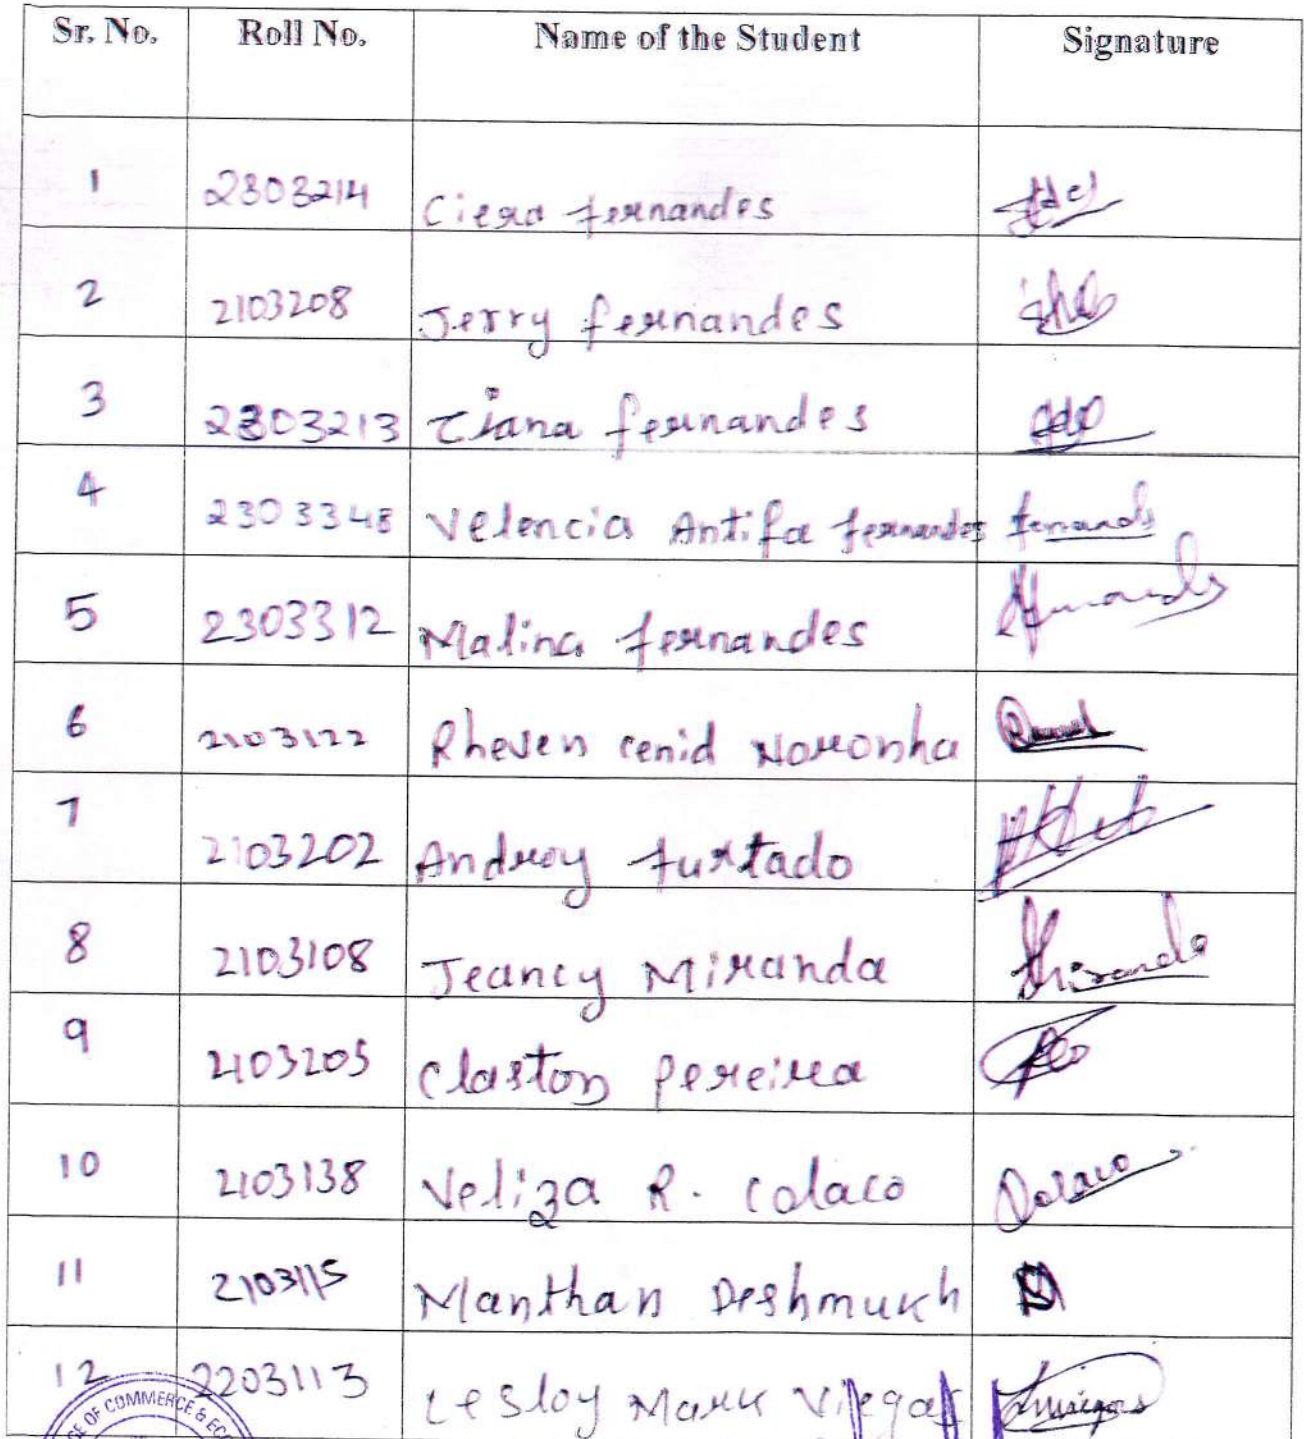 Sr. No. Roll No. Name of the Student Signature
1 2303214 Ciera fernandes
2 2103208 Jerry fernandes
3 2303213 Tiana fernandes
4 2303348 Velencia Antifa fernandes fernands
5 2303312 Malina fernandes
6 2103122 Rheven cenid Noronha
7 2103202 Androy furtado
8 2103108 Jeancy Miranda
9 2103205 Claston Pereira
10 2103138 Veliza R. Colaco Colaco
11 2103115 Manthan Deshmukh
12 2203113 Lesloy Mark Viegas
OF COMMERCE &